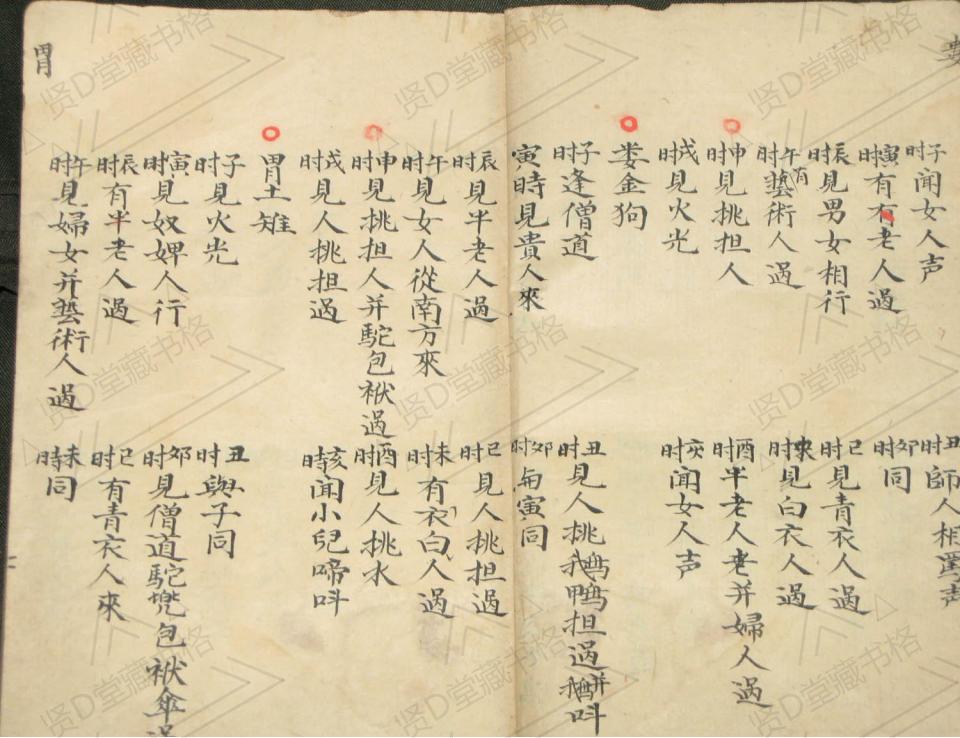 子时闻女人声
丑时師人相罵声
寅时有有老人過
卯时同
辰时見男女相行
巳时見青衣人過
午时有藝術人過
未时見白衣人過
申时見挑担人
酉时半老人老并婦人過
戌时見火光
亥时闻女人声
娄金狗
子时逢僧道
丑时見人挑鵝鴨担過并鵝叫
寅時見貴人來
卯时与寅同
辰时見半老人過
巳时見人挑担過
午时見女人從南方來
未时有衣白人過
申时見挑担人并駝包袱過
酉时見人挑水
戌时見人挑担過
亥時闻小兒啼叫
胃土雉
子时見火光
丑时與子同
寅时見奴婢人行
卯时見僧道駝兠包袱傘過
辰时有半老人過
巳时有青衣人來
午时見婦女并藝術人過
未時同
胃
娄
贤D堂藏书格